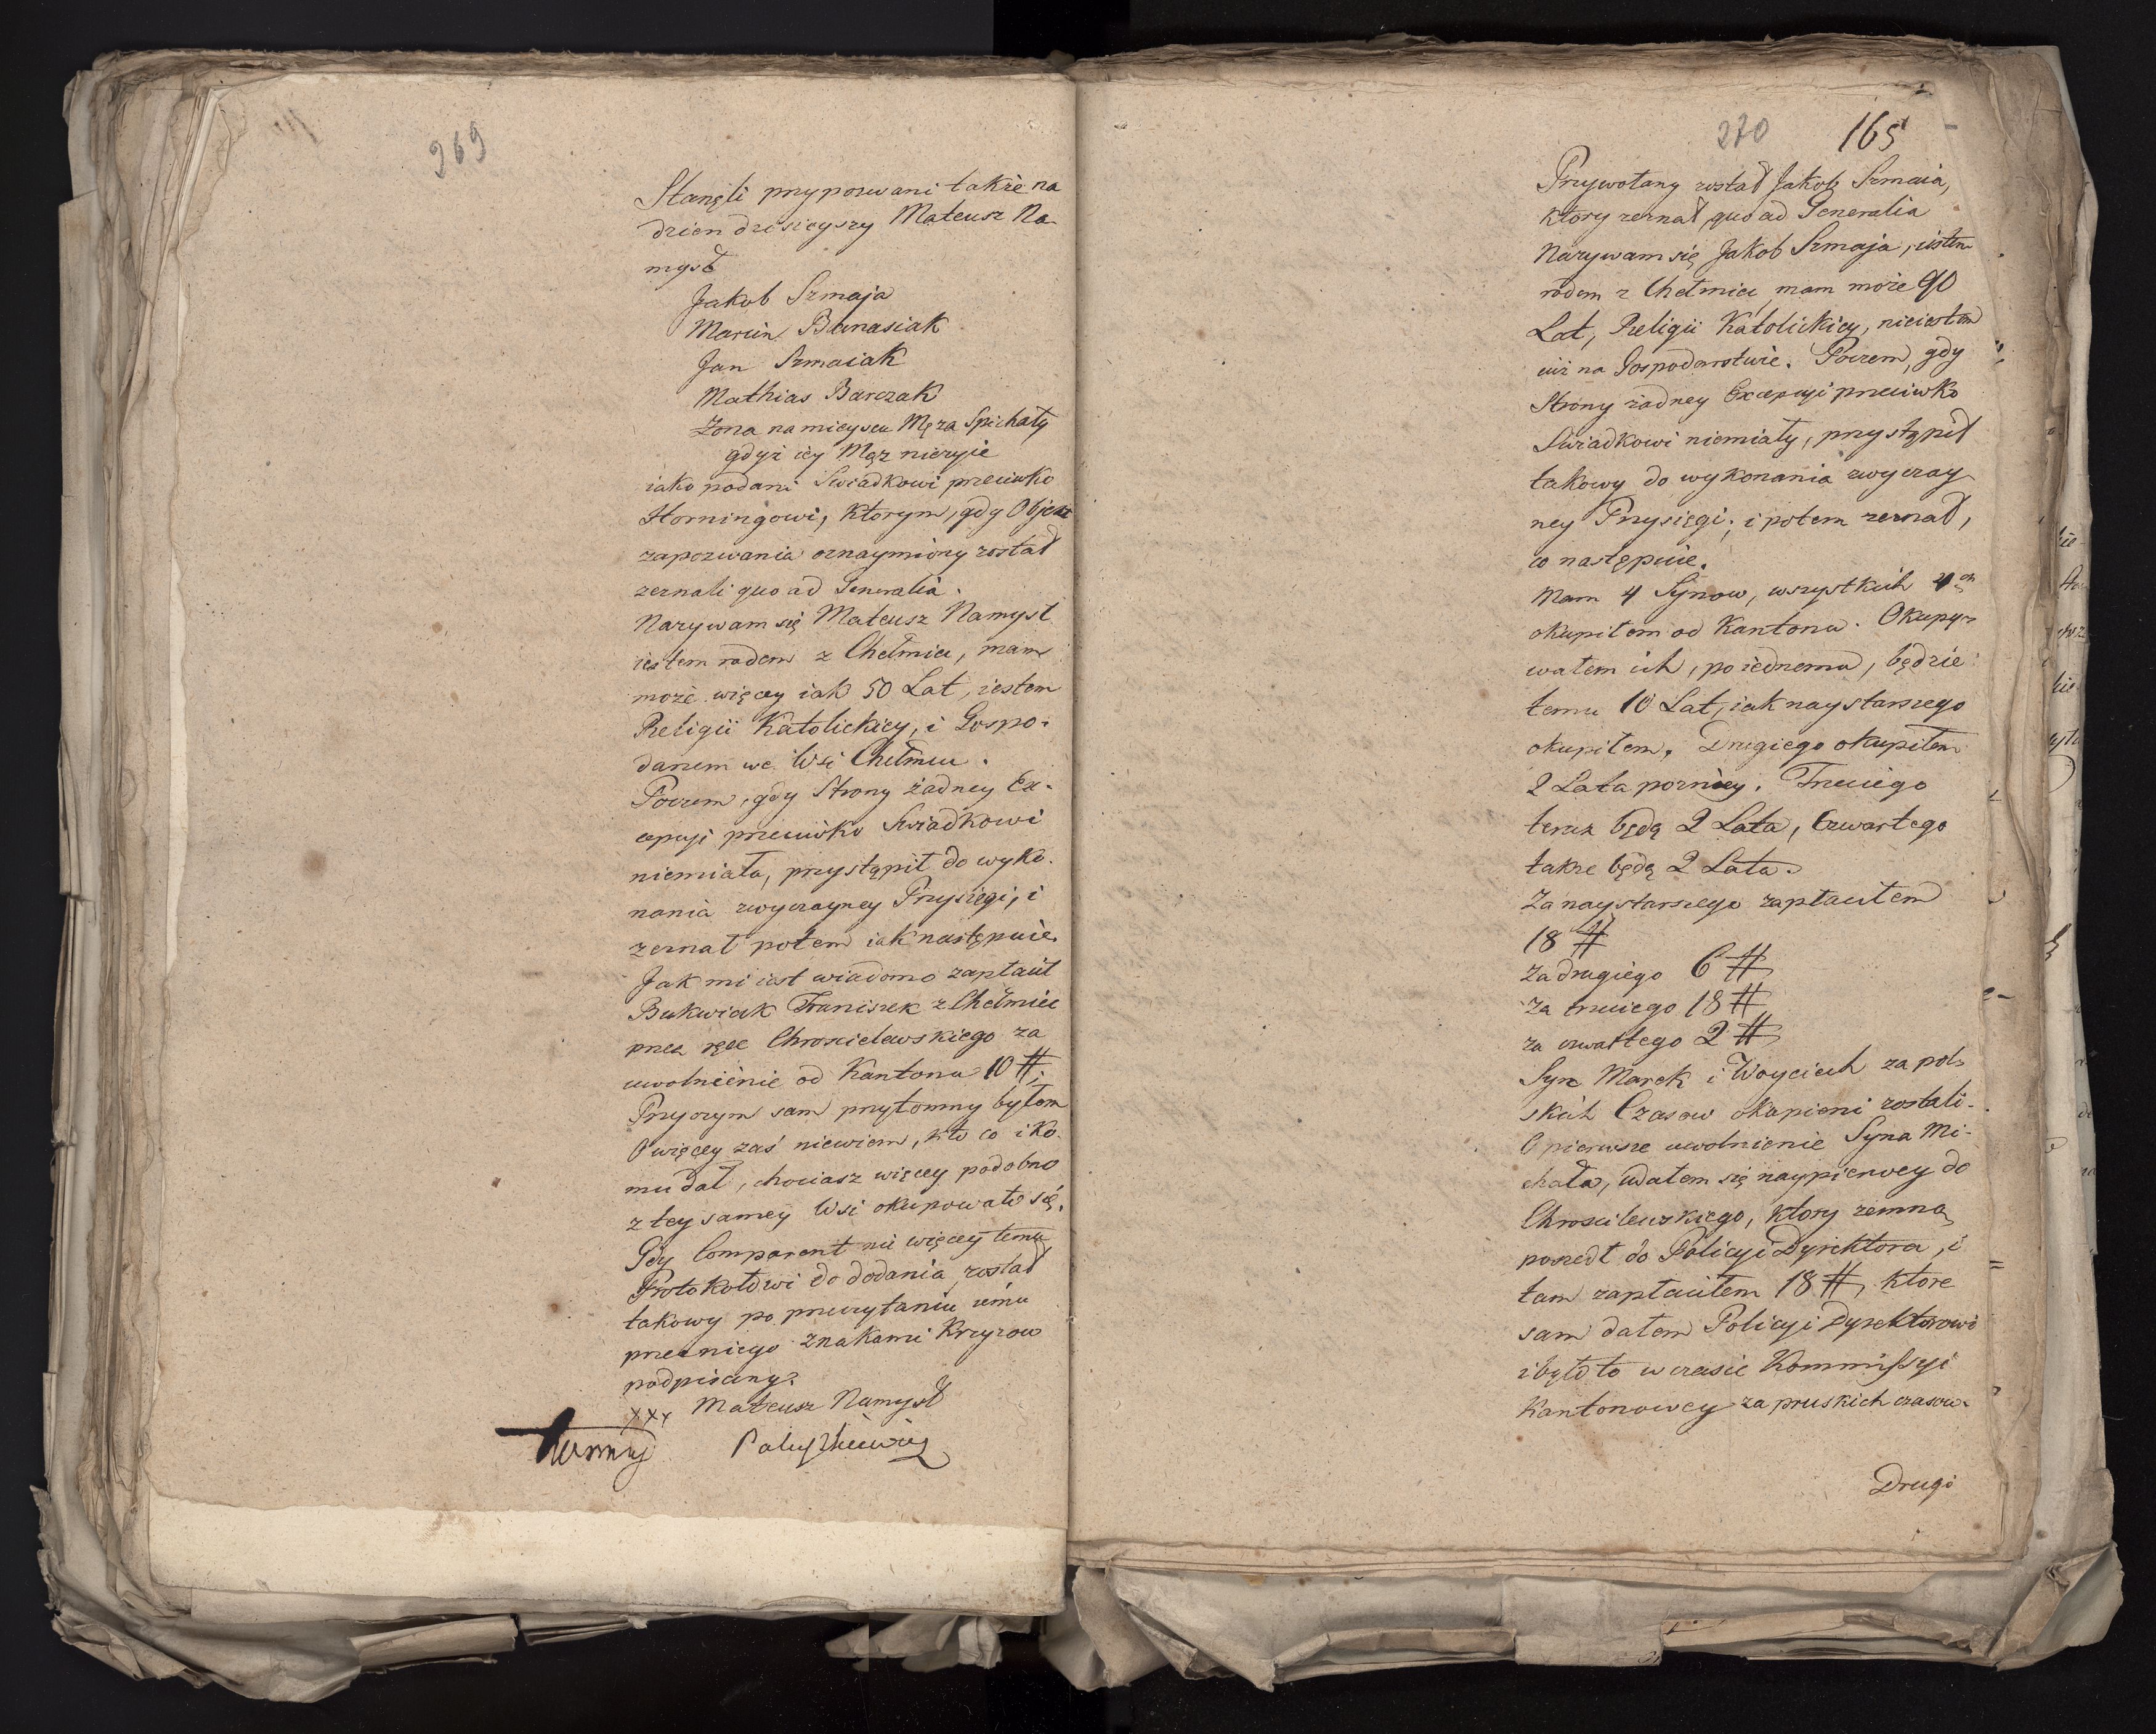 269
Stanęli przypozwani także na
dzień dzisieyszy Mateusz Na-
mysł
Jakob Szmaja
Marcin Banasiak
Jan Szmaiak
Mathias Barczak
Żona na mieyscu Męża Spichały
gdyż iey Mąż nieżyie
iako podani Swiadkowi przeciwko
Horningowi, Ktorym, gdy Objekt
zapozwania oznaymiony został
zeznali quo ad Generalia.
Nazywam się Mateusz Namysł
iestem rodem z Chełmiec, mam
może więcey iak 50 Lat, iestem
Religii Katolickiey, i Gospo-
darzem we Wsi Chełmcu.
Poczem, gdy Strony żadney Ex-
cepcyi przeciwko Swiadkowi
niemiała, przystąpił do wyko-
nania zwyczayney Przysięgi, i
zeznał potem iak następuie.
Jak mi iest wiadomo zapłacił
Bukwiak Franiszek z Chełmiec
przez ręce Chroscielewskiego za
uwolnienie od Kantonu 10 #,
Przyczym sam przytomny byłem
O więcey zaś niewiem, kto co i ko-
mu dał, chociasz więcey podobno
z tey samey Wsi okupowało się.
Gdy Comparent nic więcey temu
Protokołowi do dodania, został
takowy po przeczytaniu iemu
przezniego znakami Krzyzow
podpisany.
xxx Mateusz Namysł
Paluszkiewicz
270 165
Przywołany został Jakob Szmaia,
ktory zeznał quo ad Generalia
Nazywam się Jakob Szmaja, iestem
rodem z Chełmiec mam może 90
Lat, Religii Katolickiey, nieiestem
iuż na Gospodarstwie. Poczem, gdy
Strony żadney Excepcyi przeciwko
Swiadkowi niemiały, przystąpił
takowy do wykonania zwyczay-
ney Przysięgi; i potem zeznał,
co następuie.
Mam 4 Synow, wszystkich 4ch
okupiłem od Kantonu. Okupy-
wałem ich, po iednemu, będzie
temu 10 Lat, iak naystarszego
okupiłem, Drugiego okupiłem
2 Lata pozniey. Trzeciego
teraz będą 2 Lata, Czwartego
takze będą 2 Lata.
Za naystarszego zapłaciłem
18 #
za drugiego 6 #
za trzeciego 18 #
za czwartego 2 #
Syn Marek i Woyciech za pol-
skich Czasow okupieni zostali.
O pierwsze uwolnienie Syna Mi-
chała, udałem się naypierwey do
Chroscilewskiego, ktory zemną
poszedł do Policyi Dyrektora, i
tam zapłaciłem 18 #, ktore
sam dałem Policyi Dyrektorowi
i było to w czasie Kommissyi
Kantonowey za pruskich czasow.
Drugi